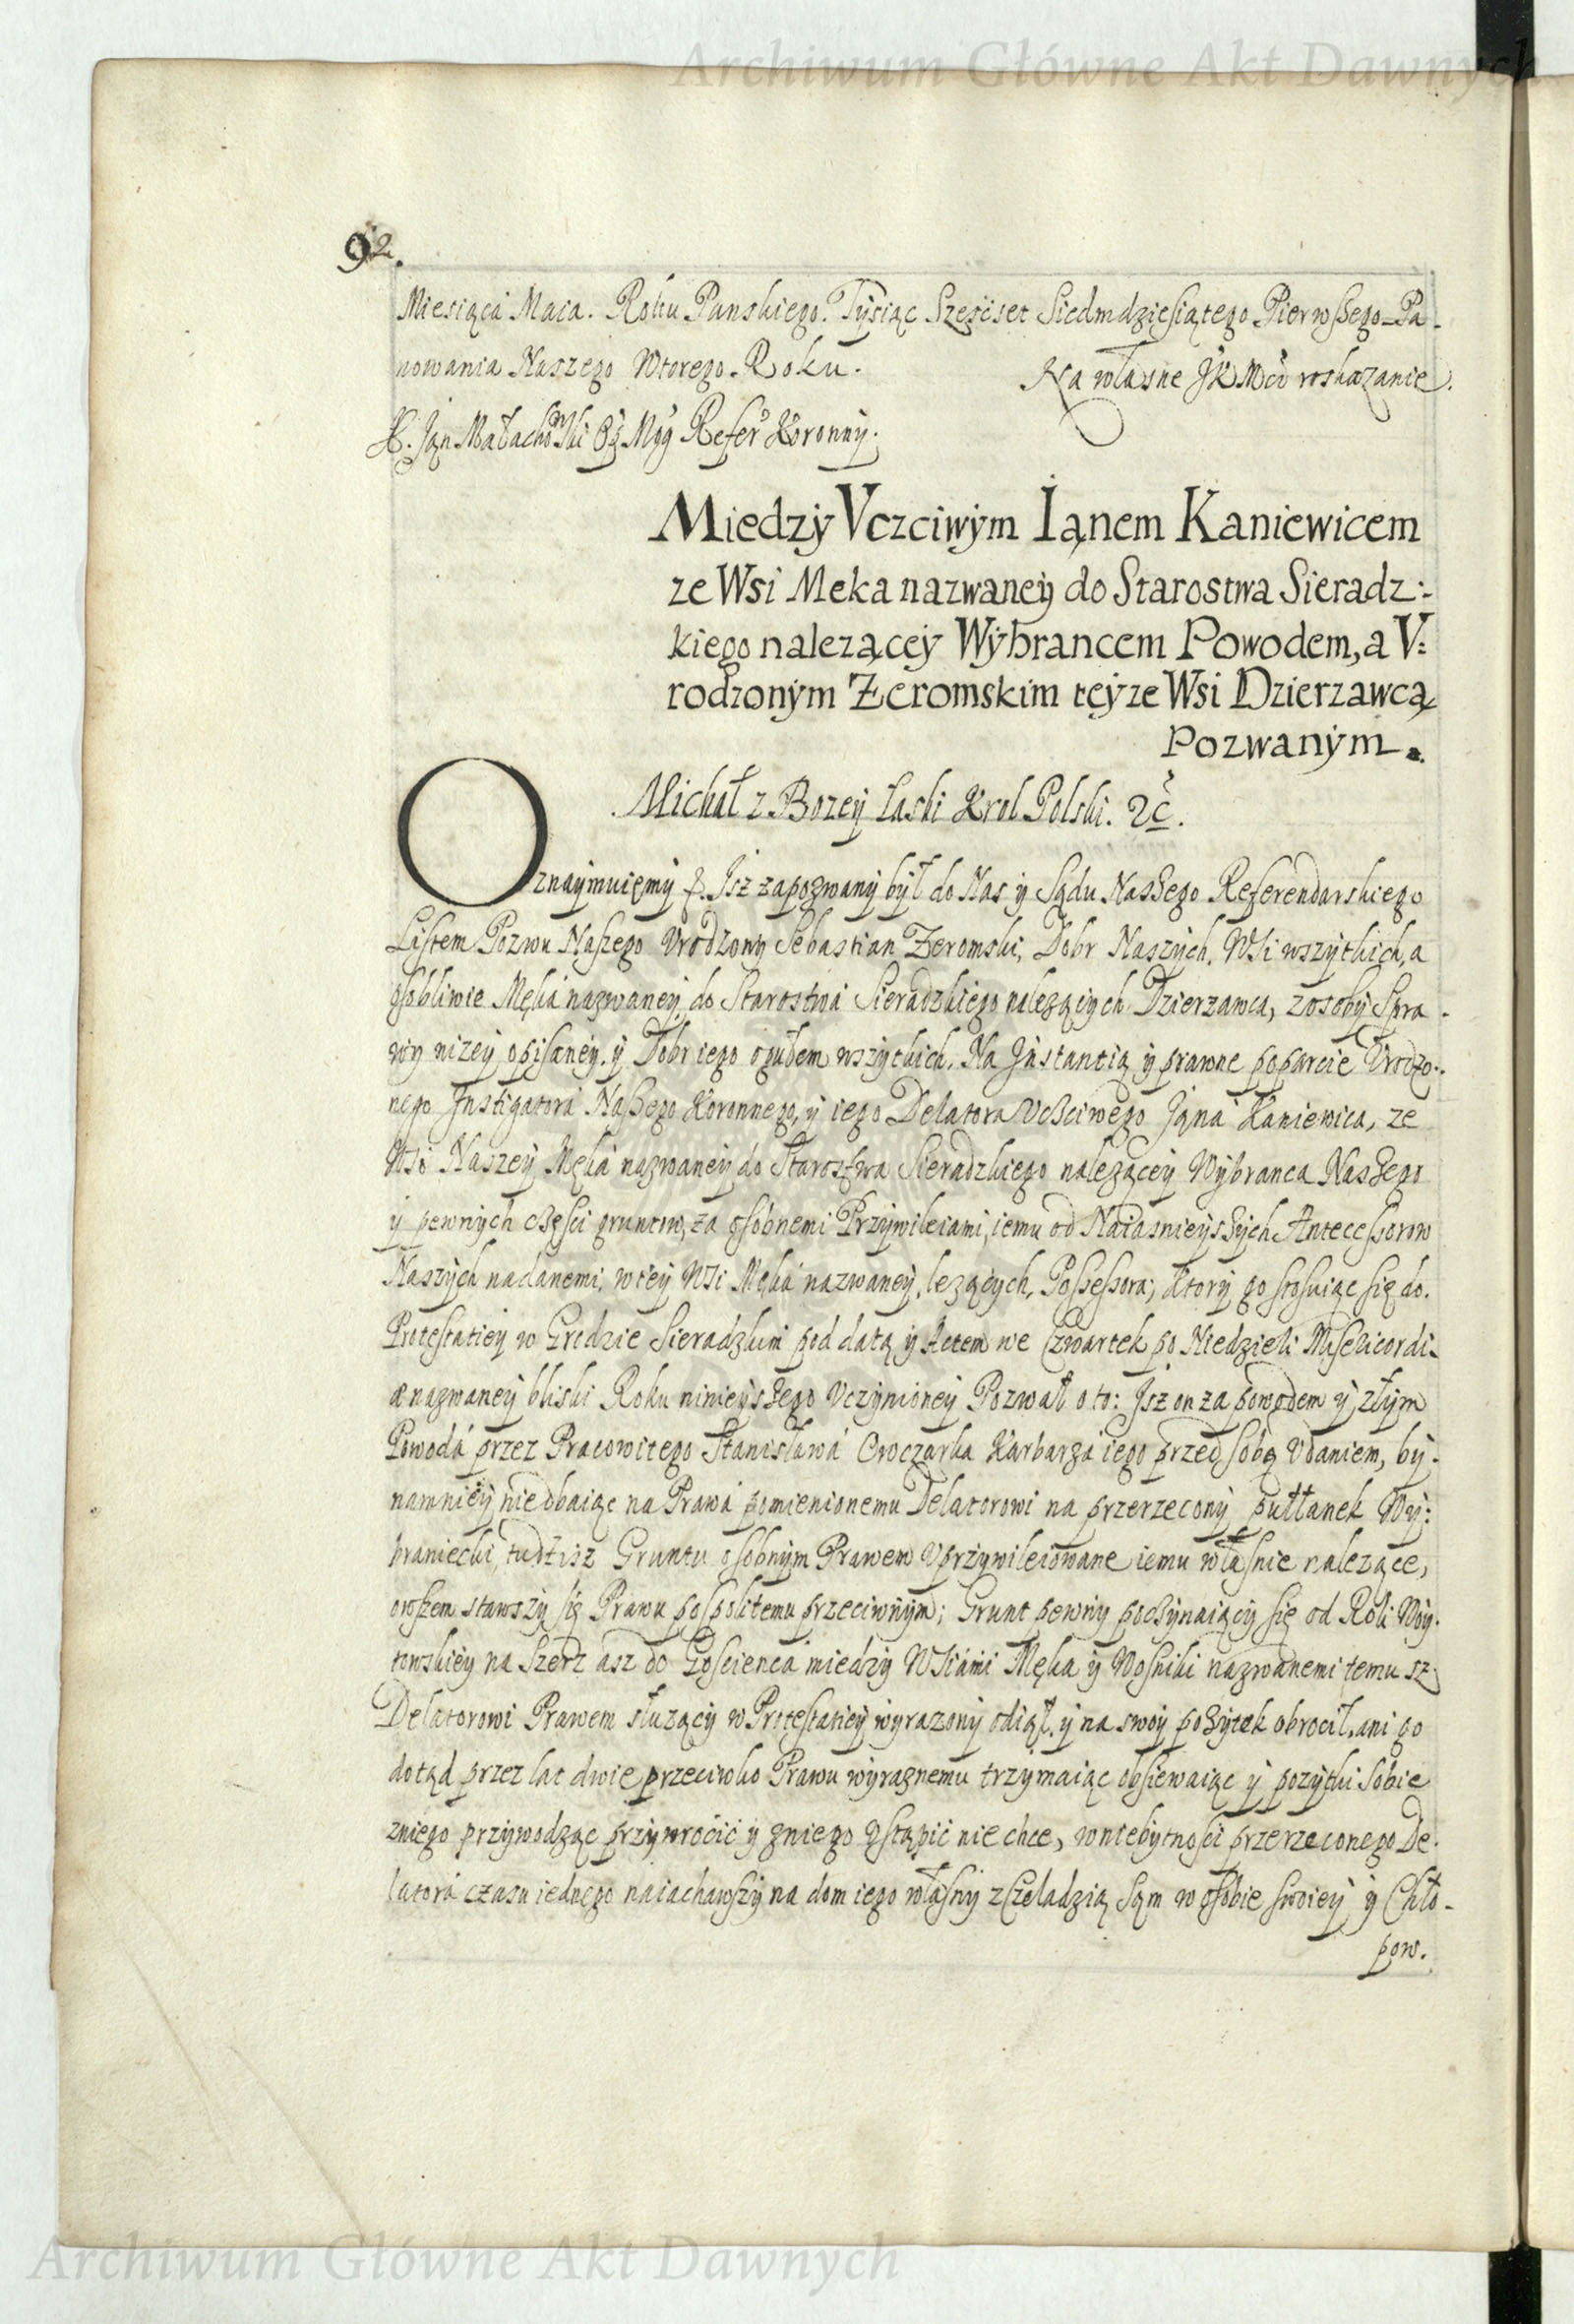 Archiwum Główne Akt Dawnych
92.
Miesiąca Maia. Roku Panskiego. Tysiąc Szescset Siedmdziesiątego Pierwszego Pa-
nowania Naszego Wtorego Roku. Na własne JKMći roskazanie.
X. Jąn Małachowski Refer Koronny.
Miedzy Vczciwym Iąnem Kaniewicem
ze Wsi Meka nazwaney do Starostwa Sieradz:
kiego nalezącey Wybrancem Powodem, a V:
rodzonym Zeromskim teyze Wsi Dzierzawcą
Pozwanym.
Michał z Bozey Łaski Krol Polski. &c.
Oznaymuiemy Isz zapozwany był do Nas y Sądu Naszego Referendarskiego
Listem Pozwu Naszego Vrodzony Sebastian Zeromski, Dobr Naszych. Wsi wszytkich, a
osobliwie Męká nazwaney, do Starostwá Sieradzkiego nalezących Dzierzawca, z osoby Spra-
wy nizey opisaney. y Dobr iego ogułem wszytkich. Na Instantią y prawne poparcie Vrodzo:
nego Instigatorá Naszego Koronnego, y iego Delatora Vczciwego Jąná Kaniewica, ze
Wsi Naszey Męká nazwaney do Starostwa Sieradzkiego nalezącey Wybranca Naszego
y pewnych częsci gruntow, za osobnemi Przywileiami, iemu od Naiasnieyszych Antecessorow
Naszych nadanemi, w tey Wsi Męká nazwaney, lezących, Possessora; ktory go stosuiąc się do.
Protestatiey w Grodzie Sieradzkim pod datą y Actem we Czwartek po Niedzieli Misericordi-
æ nazwaney bliski Roku ninieyszego Vczynioney Pozwał o to: Jsz on za powodem y złym
Powodá przez Pracowitego Stanisławá Oroczarka Karbarzá iego przed sobą Vdaniem, by-
namniey niedbaiąc na Prawá pomienionemu Delatorowi na przerzeczony pułłanek Wy:
braniecki, tudzisz Gruntu osobnym Prawem Vprzywileiowane iemu własnie nalezące,
owszem stawszy się Prawu pospolitemu przeciwnym; Grunt pewny poczynaiący się od Roli Woy-
towskiey na Szerz asz do Goscienca miedzy Wsiami Męka y Wosniki nazwanemi temu sz
Delatorowi Prawem słuzący w Protestatiey wyrazony odiął, y na swoy pozytek obrocił, ani go
dotąd przez lat dwie przeciwko Prawu wyraznemu trzymaiąc obsiewaiąc y pozytki sobie
zniego przywodząc przywrocić y zniego Vstąpić nie chce, w niebytnosci przerzeconego De-
latorá czasu iednego naiachawszy na dom iego własny z Czeladzią Sąm w osobie swoiey y Chło-
pow.
Archiwum Główne Akt Dawnych